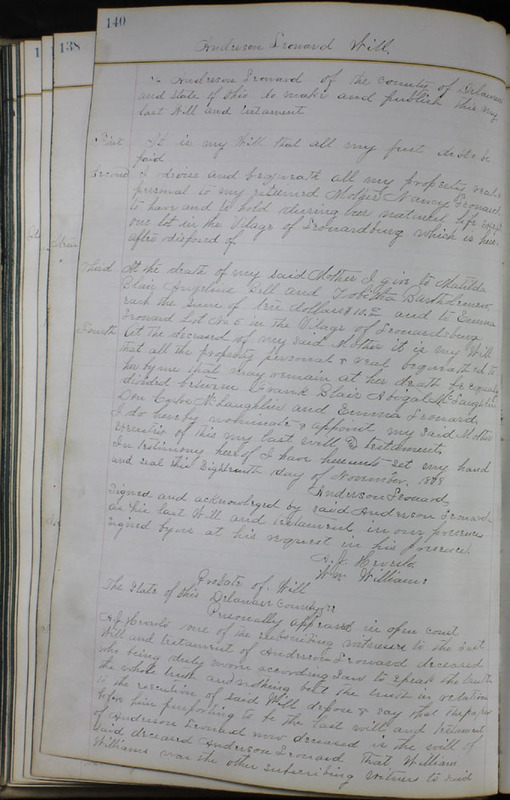 140
138
Anderson Leonard Will.
I, Anderson Leonard of the County of Delaware
and State of Ohio do make and publish this my
last Will and testament
First It is my Will that all my just debts be
paid
Second I devise and bequeath all my property real &
personal to my esteemed Mother Nancy Leonard
to have and to hold during her natural life except
one lot in the Village of Leonardsburg which is here
after disposed of
Third At the death of my said Mother I give to Matilda
Blair Angeline Hill and Tabitha
each the sum of dollars and to Emma
Leonard Lot No 5 in the Village of Leonardsburg
Fourth At the decease of my said Mother it is my Will
that all the property personal & real bequeathed to
her by me that may remain at her death be equally
divided between Frank Blair McLaughlin
Don McLaughlin and Emma Leonard,
I do hereby nominate & appoint my said Mother
executor of this my last will & testament
In testimony hereof I have hereunto set my hand
and seal this Eighteenth day of November, 18
Anderson Leonard,
Signed and acknowledged by said Anderson Leonard
as his last Will and testament in our presence
signed by us at his request in his presence
A. J.
Wm Williams
Probate of Will
The State of Ohio Delaware County ss
Personally appeared in open court
A. J. one of the subscribing witnesses to the last
Will and testament of Anderson Leonard deceased
who being duly sworn according to law to speak the truth
the whole truth and nothing but the truth in relation
to the execution of said Will depose & say that the paper
before him purporting to be the last will and testament
of Anderson Leonard now deceased is the will of
said deceased Anderson Leonard That William
Williams was the other subscribing witness to said